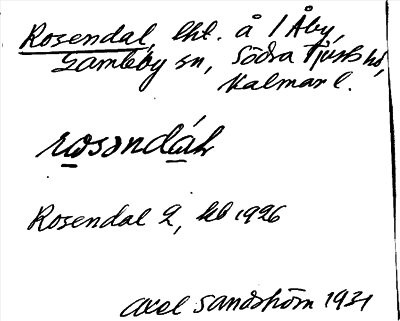 Rosendal, lht. å 1 Åby,
Gamleby sn, Södra Tjusts hd,
Kalmar l.
rosəndáL
Rosendal 2, kb 1926
Axel Sandström 1931